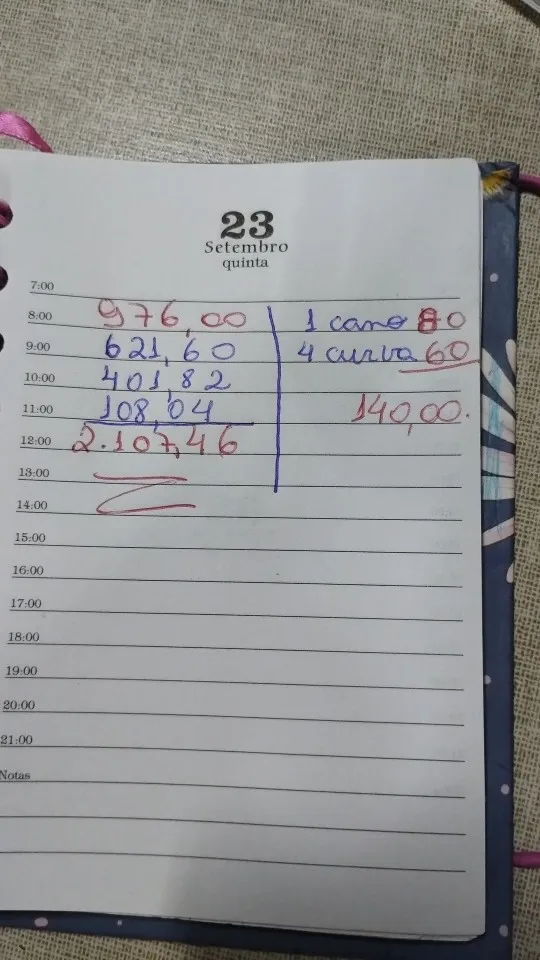 23
Setembro
quinta
7:00
8:00 976,00 1 cano 80
9:00 621,60 4 curva 60
10:00 401,82
11:00 108,04 140,00.
12:00 2.107,46
13:00
14:00
15:00
16:00
17:00
18:00
19:00
20:00
21:00
Notas